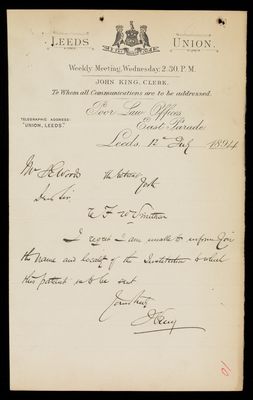 LEEDS UNION.
Weekly Meeting, Wednesday, 2.30. P.M.
JOHN KING, CLERK.
To Whom all Communications are to be addressed.
TELEGRAPHIC ADDRESS:
"UNION, LEEDS."
Poor Law Offices
East Parade
Leeds, 12 July 1894
Mr Woods
York
Dear Sir,
I regret I am unable to inform you
the name and locality of the Institution to which
this patient is to be sent
Yours truly
J King
10